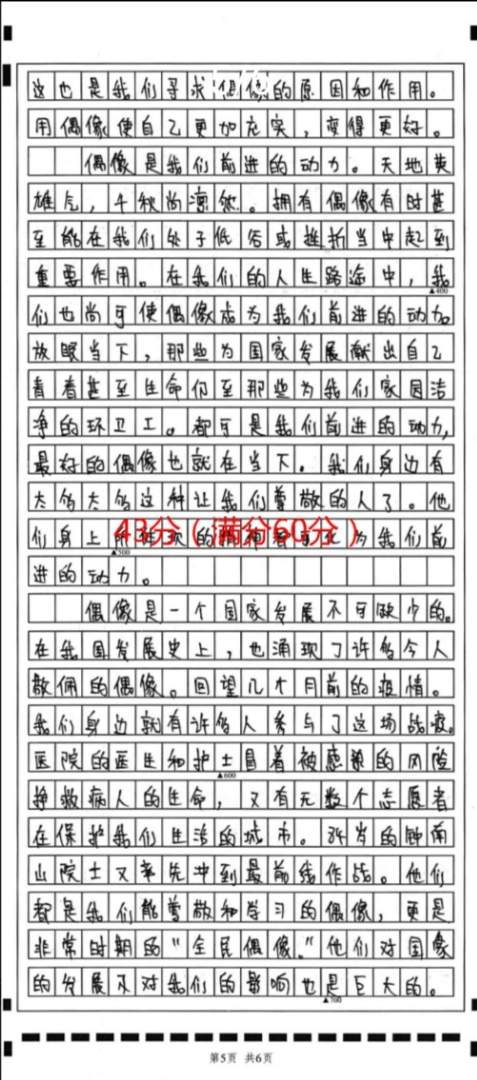 这也是我们寻求偶像的原因和作用。
用偶像使自己更加充实，变得更好。
偶像是我们前进的动力。天地英
雄气，千秋尚凛然。拥有偶像有时甚
至能在我们处于低谷或挫折当中起到
重要作用。在我们的人生路途中，我
▲400
们也尚可使偶像成为我们前进的动力
放眼当下，那些为国家发展献出自己
青春甚至生命仍至那些为我们家园洁
净的环卫工。都可是我们前进的动力，
最好的偶像也就在当下。我们身边有
太多太多这种让我们尊敬的人了。他
们身上所 的精神 为我们前
43分（满分60分）
▲500
进的动力。
偶像是一个国家发展不可缺少的。
在我国发展史上，也涌现了许多令人
敬佩的偶像。回望几个月前的疫情。
我们身边就有许多人参与了这场战疫。
医院的医生和护士冒着被感染的风险
▲600
拯救病人的生命，又有无数个志愿者
在保护我们生活的城市。84岁的钟南
山院士又率先冲到最前线作战。他们
都是我们能尊敬和学习的偶像，更是
非常时期的“全民偶像。”他们对国家
的发展及对我们的影响也是巨大的。
▲700
第5页 共6页